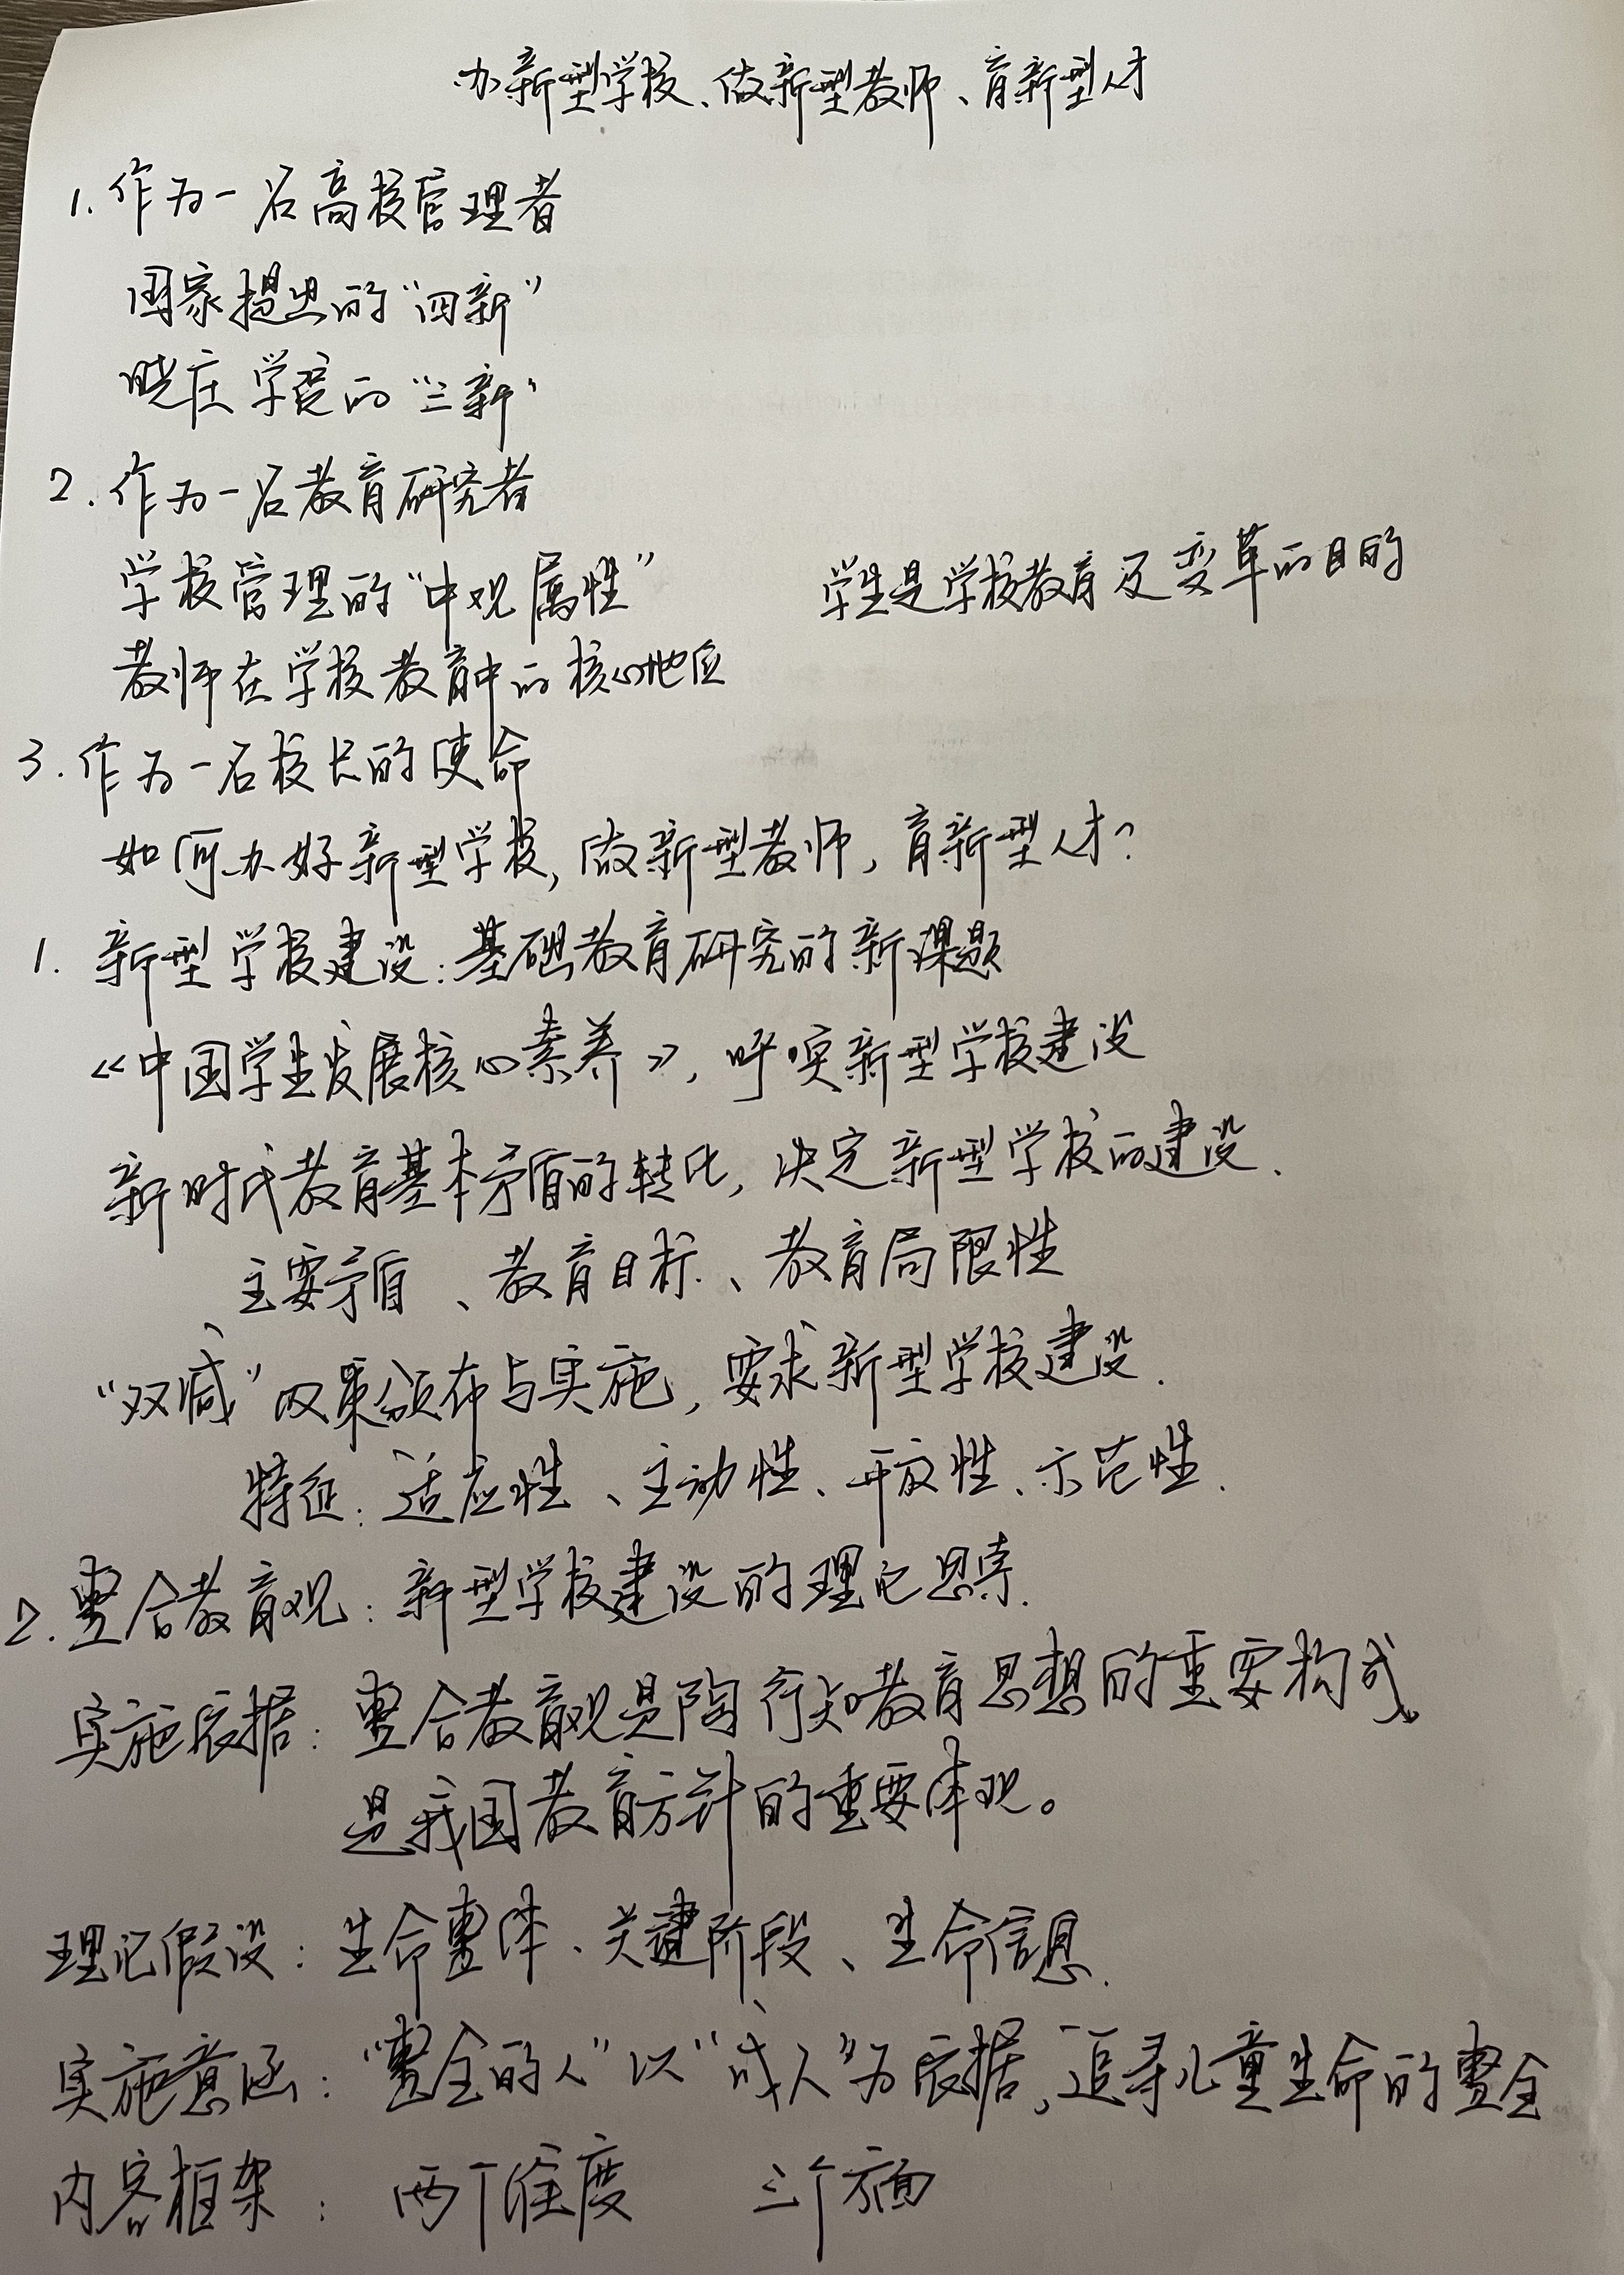 办新型学校、做新型教师、育新型人才
1. 作为一名高校管理者
国家提出的“四新”
晓庄学院的“三新”
2. 作为一名教育研究者
学校管理的“中观属性”
学生是学校教育及变革的目的
教师在学校教育中的核心地位
3. 作为一名校长的使命
如何办好新型学校, 做新型教师, 育新型人才?
1. 新型学校建设: 基础教育研究的新课题
《中国学生发展核心素养》, 呼唤新型学校建设
新时代教育基本矛盾的转化, 决定新型学校的建设.
主要矛盾、教育目标、教育局限性
“双减”政策颁布与实施, 要求新型学校建设.
特征: 适应性、主动性、开放性、示范性.
2. 整合教育观: 新型学校建设的理论思索.
实施依据: 整合教育观是陶行知教育思想的重要构成,
是我国教育方针的重要体现。
理论假设: 生命整体、关键阶段、生命信息.
实施意涵: “整全的人”以“成人”为依据, 追寻儿童生命的整全
内容框架: 两个维度 三个方面